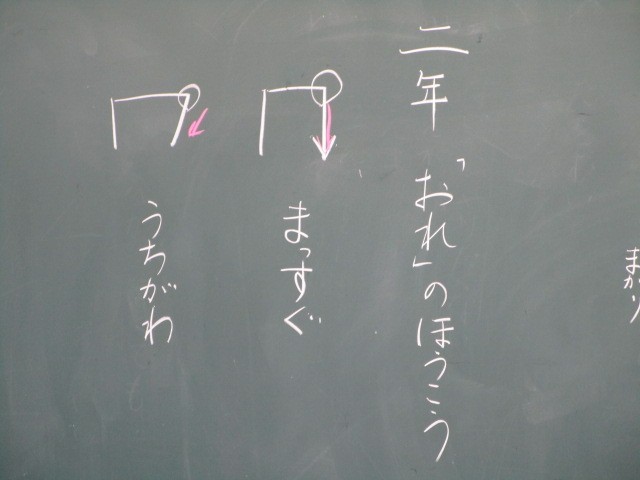 まがり
二年　「おれ」のほうこう
まっすぐ
うちがわ